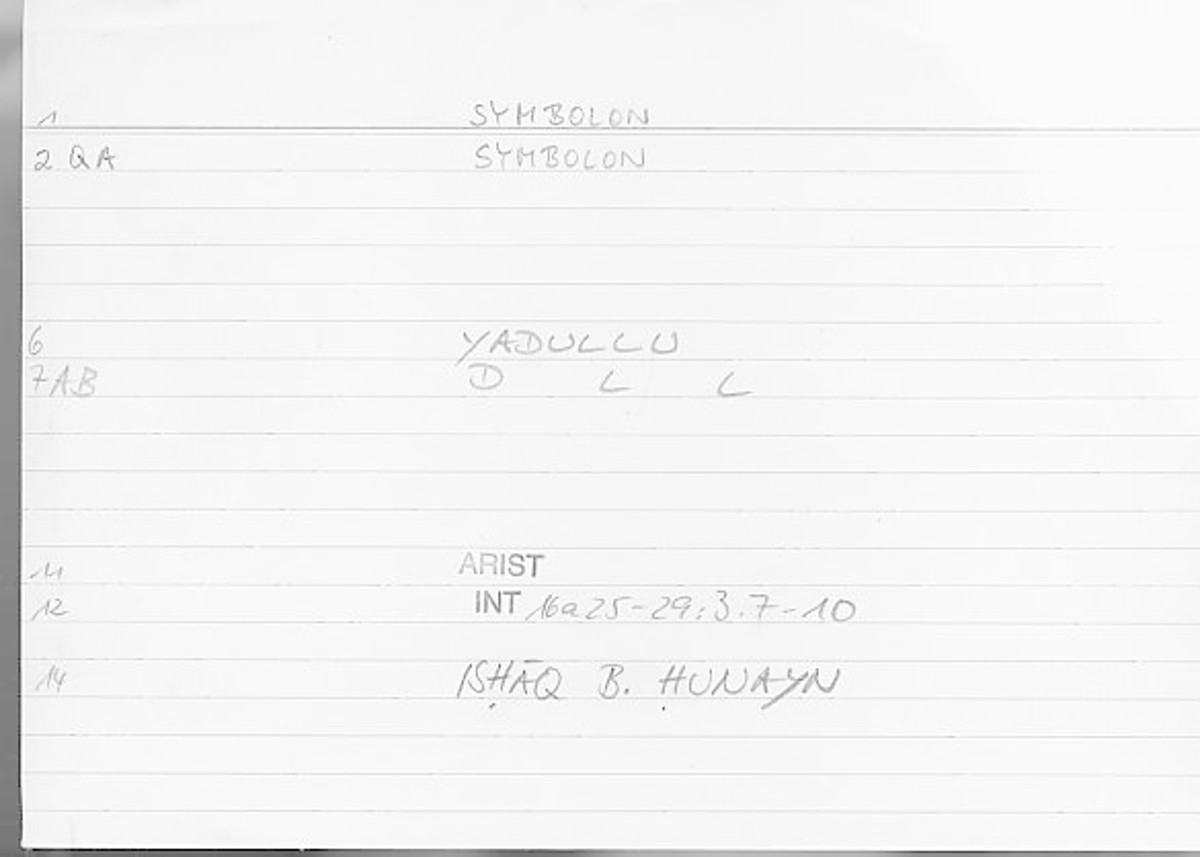 1 SYMBOLON
2 QA SYMBOLON
6 YADULLU
7 AB D L L
11 ARIST
12 INT 16a25-29:3.7-10
14 ISḤĀQ B. ḤUNAYN